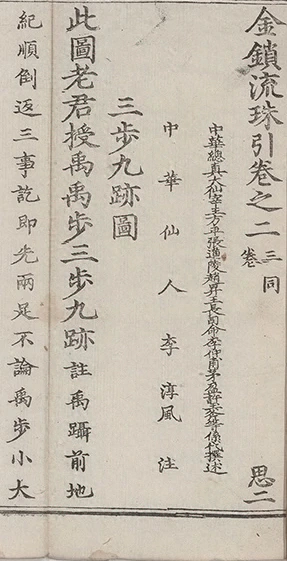 金鎖流珠引卷之二 三同卷 思二
中華總真大仙宰王方平張道陵趙昇王長司命李仲甫茅盈許玉斧等係代撰述
中華仙人李淳風注
三步九跡圖
此圖老君授禹禹步三步九跡註禹躡前地
紀順倒返三事訖即先兩足不論禹步小大